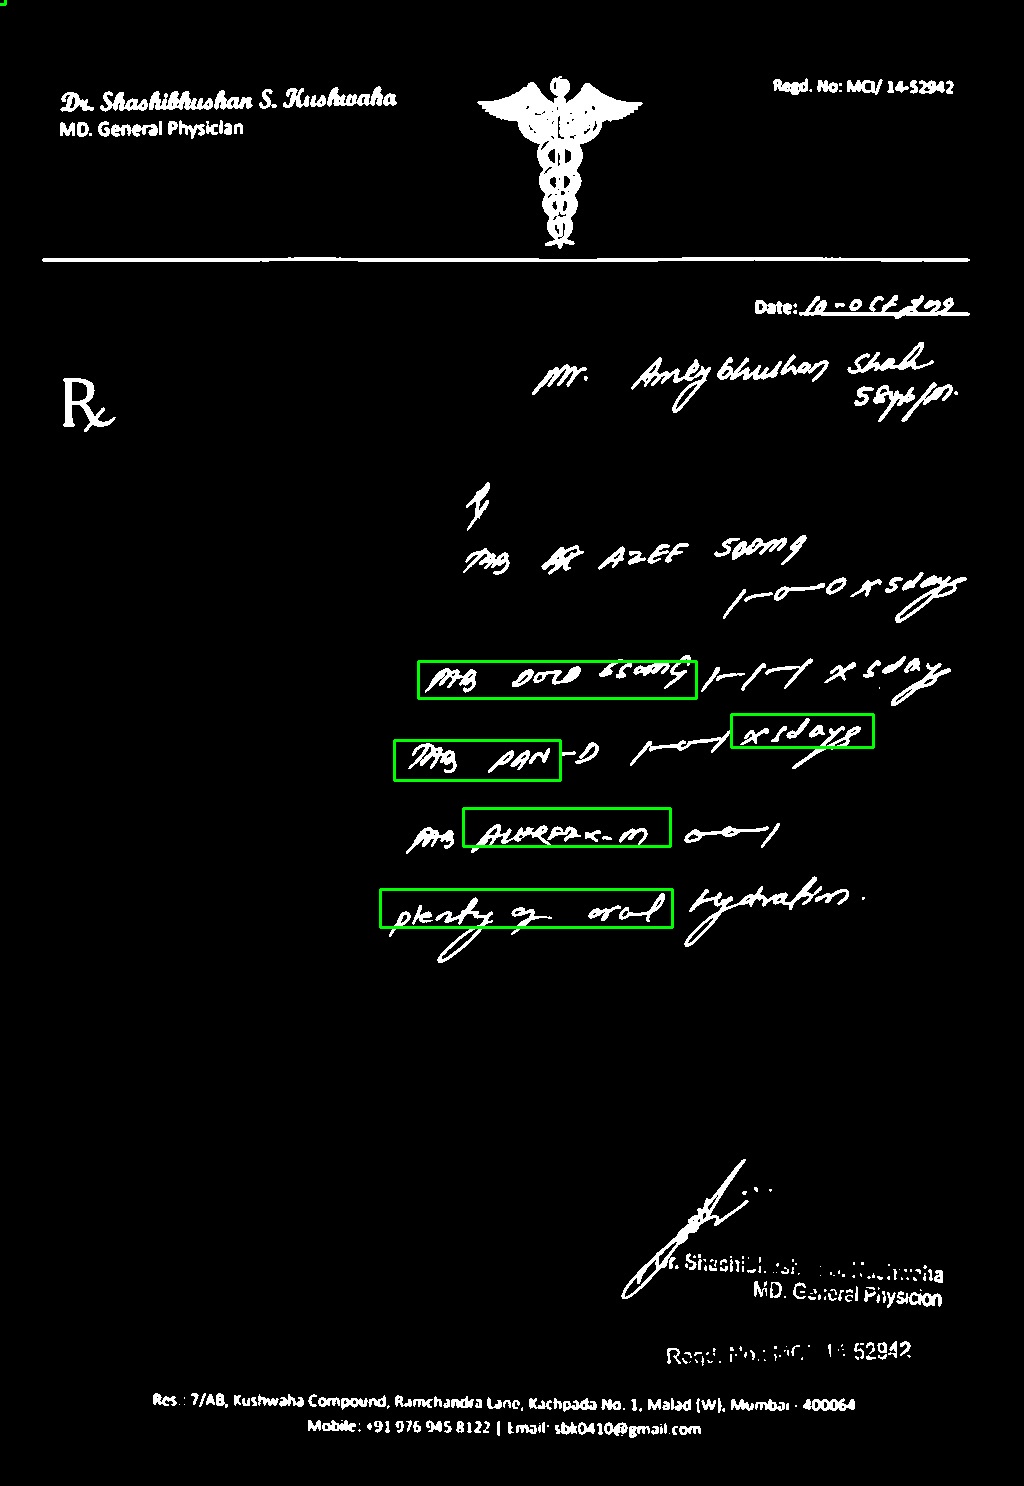 Dr. Shashibhushan S. Kushwaha
MD. General Physician
Regd. No: MCI/ 14-52942
Date: 10-Oct
Rx
Mr. Shah
58yrs/M.
TAB AZEF 500mg
1-0-0 x 5days
TAB DOLO 650mg 1-1-1 x 5days
TAB PAN-D 1-0-1 x 5days
TAB 0-0-1
plenty of oral hydration.
MD. General Physician
52942
Res.: 7/AB, Kushwaha Compound, Ramchandra Lane, Kachpada No. 1, Malad (W), Mumbai - 400064
Mobile: +91 976 945 8122 | Email: sbk0410@gmail.com